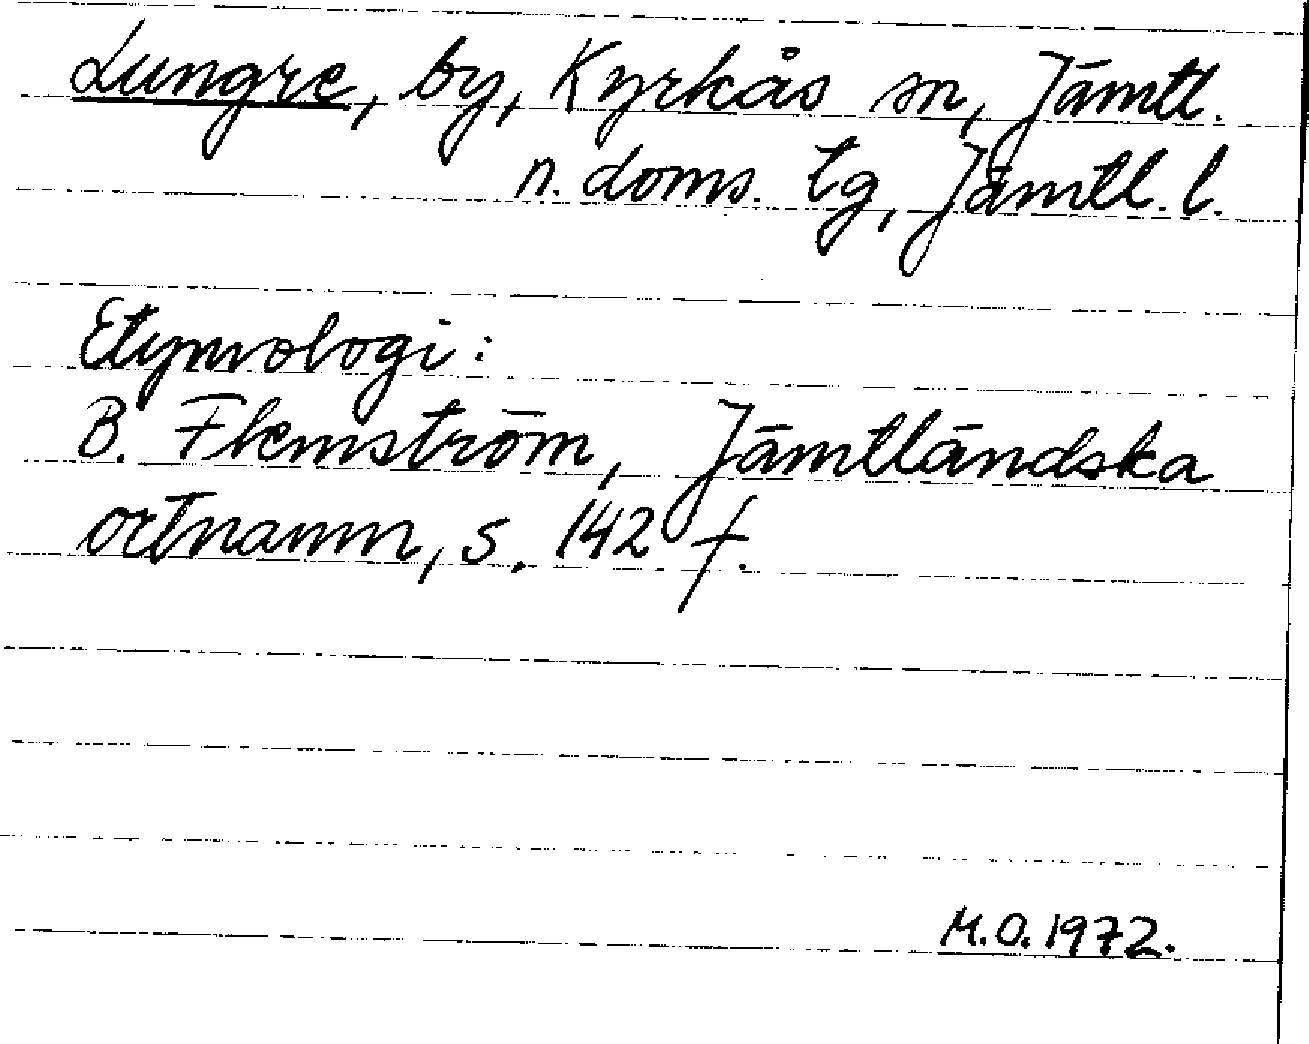 Lungre, by, Kyrkås sn, Jämtl.
n. doms. tg, Jämtl. l.
Etymologi:
B. Flemström, Jämtländska
ortnamn, s. 142 f.
M.O. 1972.